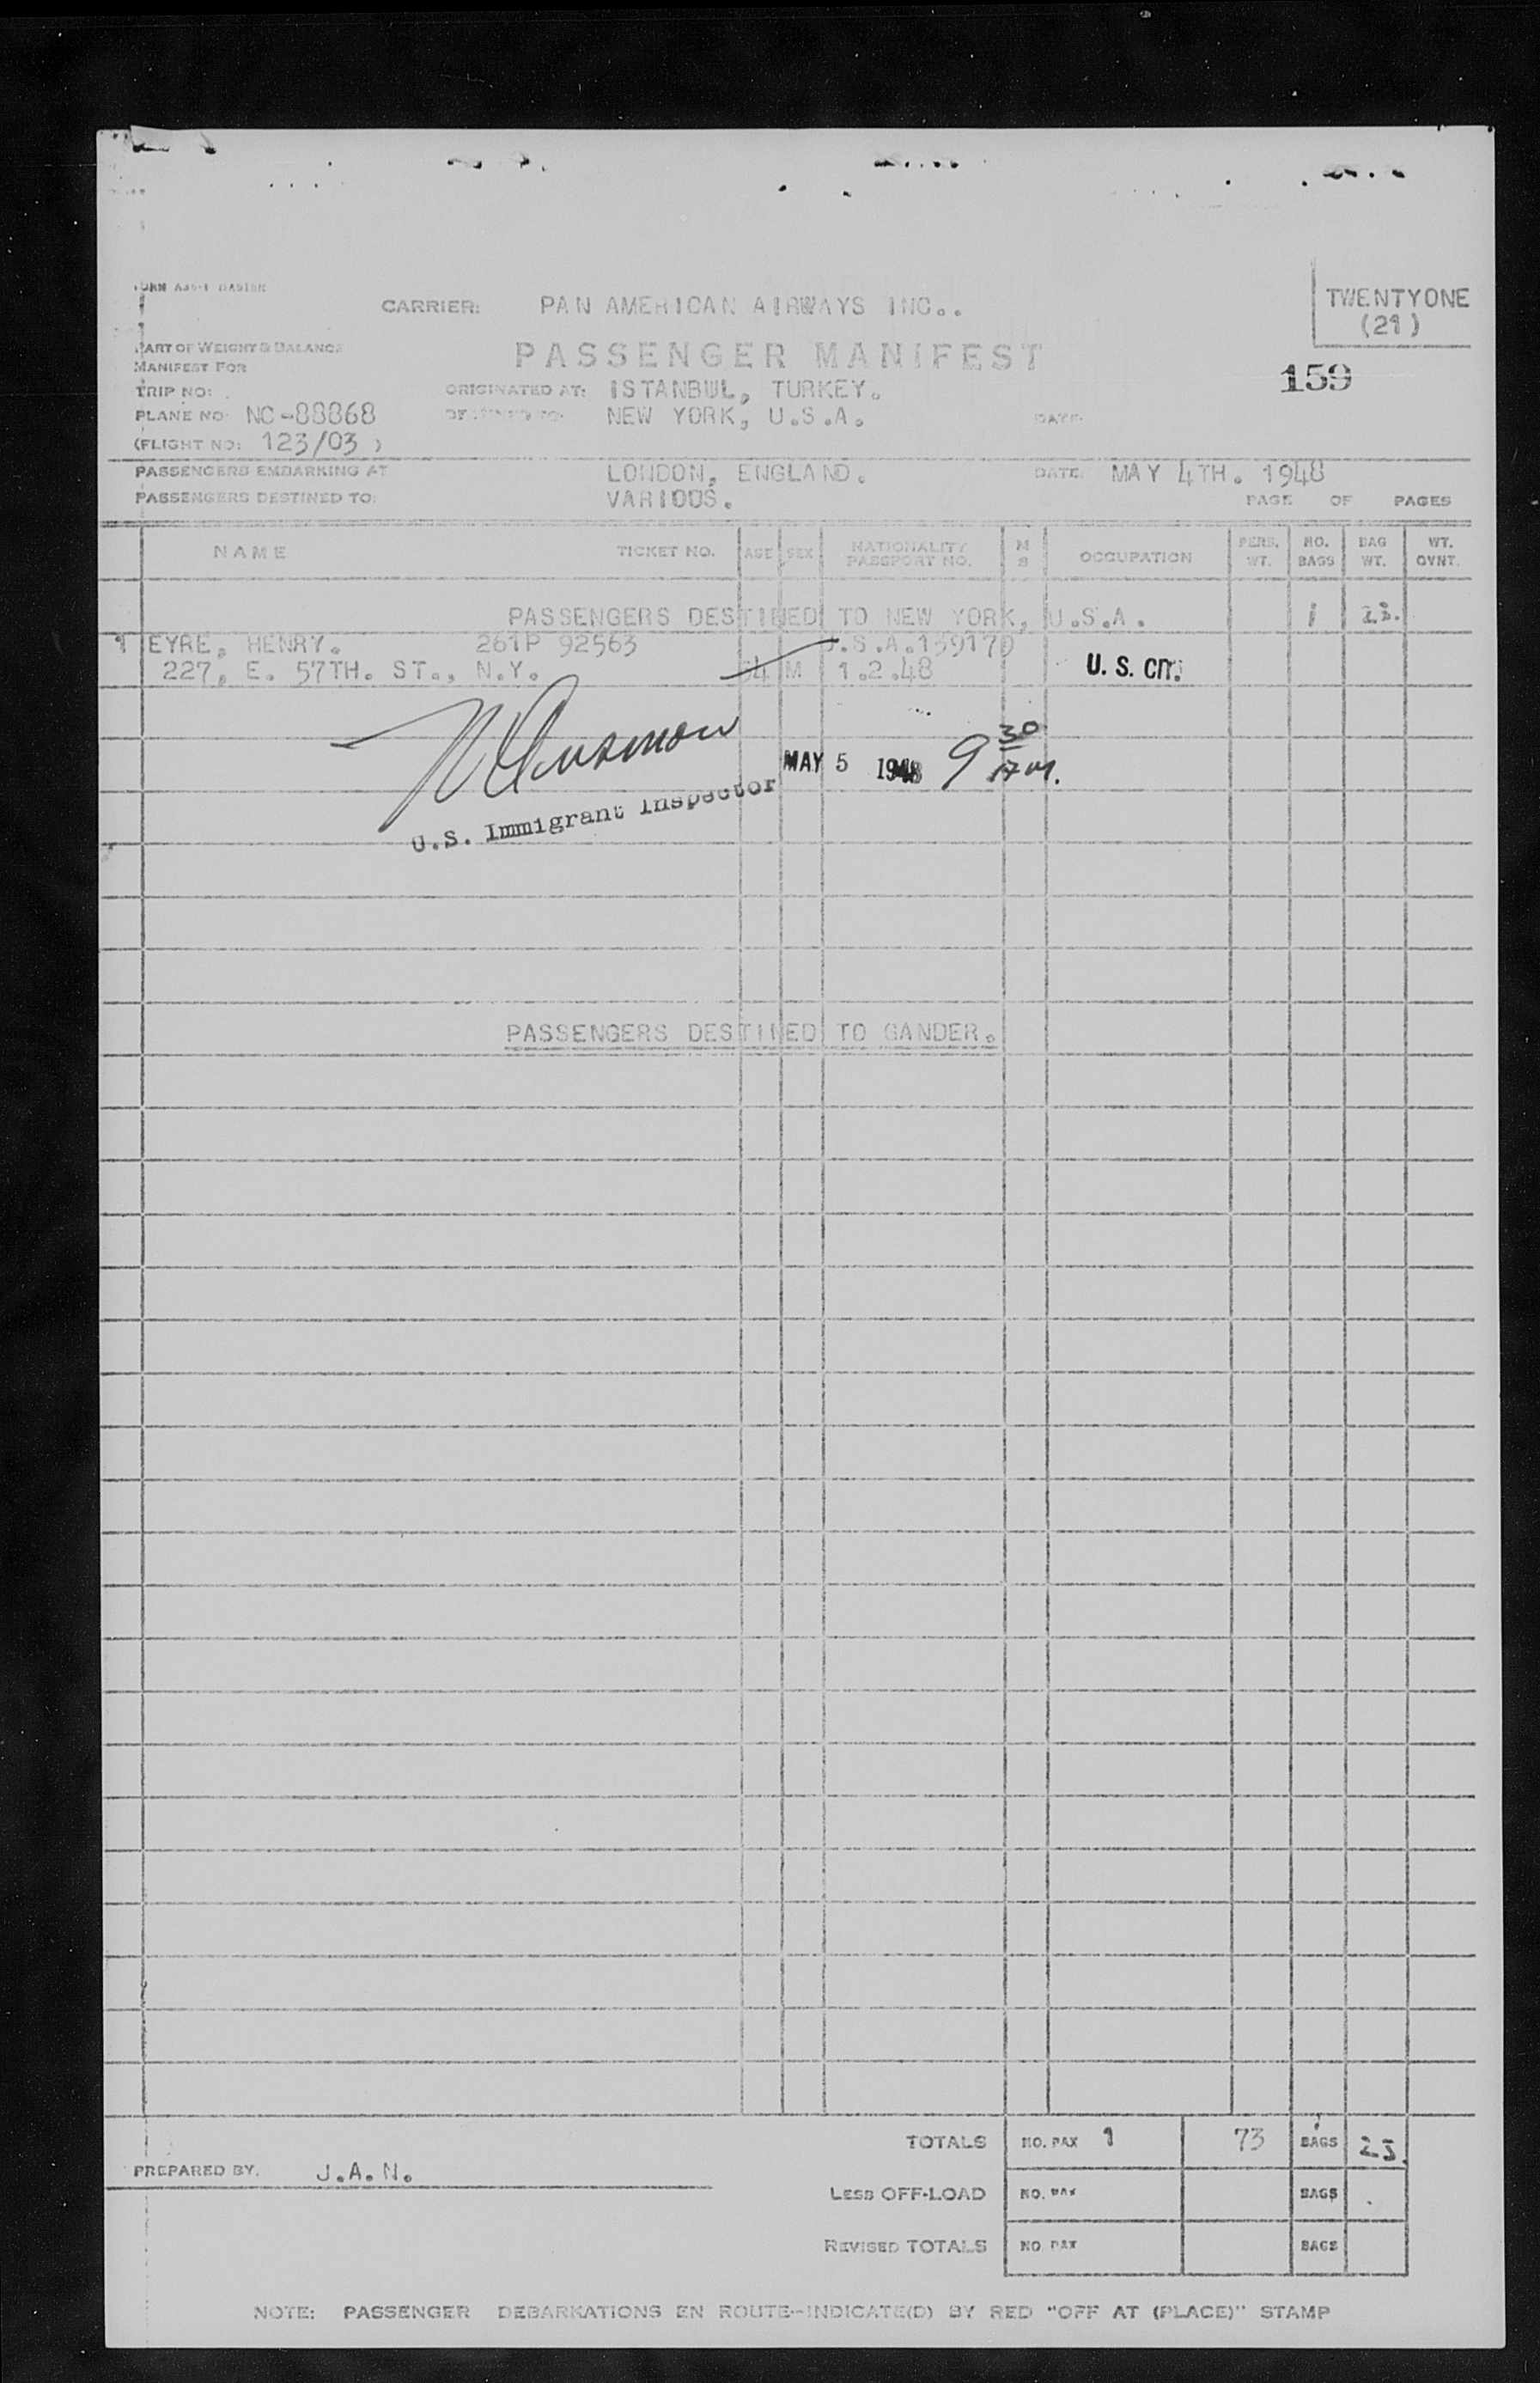 CARRIER: PAN AMERICAN AIRWAYS INC..
TWENTYONE
(21)
PART OF WEIGHT & BALANCE
MANIFEST FOR
PASSENGER MANIFEST
159
TRIP NO:
ORIGINATED AT: ISTANBUL, TURKEY.
PLANE NO: NC-88868
NEW YORK, U.S.A.
DATE:
(FLIGHT NO: 123/03 )
PASSENGERS EMBARKING AT
LONDON, ENGLAND.
DATE: MAY 4TH. 1948
PASSENGERS DESTINED TO:
VARIOUS.
PAGE OF PAGES
NAME TICKET NO. AGE SEX NATIONALITY PASSPORT NO. M S OCCUPATION PERS. WT. NO. BAGS BAG WT. WT. OVNT.
PASSENGERS DESTINED TO NEW YORK, U.S.A. 1 23.
1 EYRE, HENRY. 261P 92563 U.S.A.139170
227, E. 57TH. ST., N.Y. M 1.2.48 U. S. CIT.
MAY 5 1948 9 30 AM.
U.S. Immigrant Inspector
PASSENGERS DESTINED TO GANDER.
TOTALS NO. PAX 1 73 BAGS 23.
PREPARED BY. J.A.N.
LESS OFF-LOAD NO. PAX BAGS
REVISED TOTALS NO. PAX BAGS
NOTE: PASSENGER DEBARKATIONS EN ROUTE--INDICATE(D) BY RED "OFF AT (PLACE)" STAMP